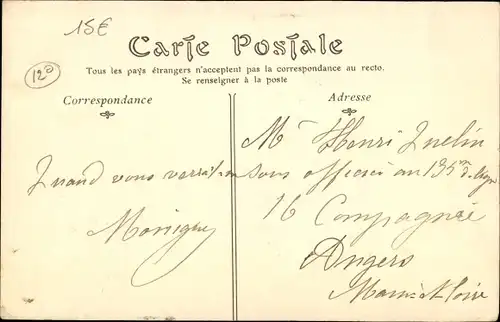 15€
120
Carte Postale
Tous les pays étrangers n'acceptent pas la correspondance au recto.
Se renseigner à la poste
Correspondance
Adresse
Quand vous
Mr Henri
sous officier au 135m d.
16 Compagnie
Angers
Maine et Loire